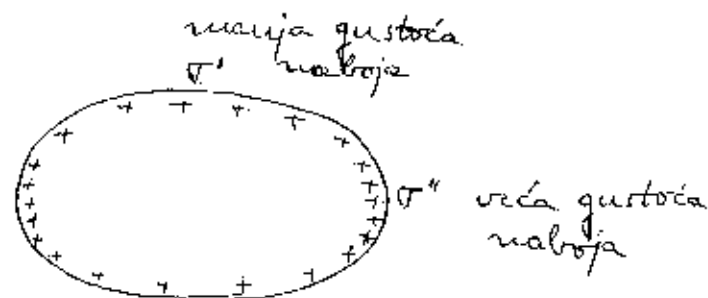 manja gustoća
naboja
σ'
σ" veća gustoća
naboja